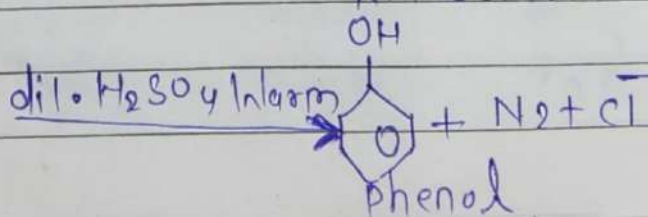 OH
dil. H2SO4 Warm
O + N2 + Cl̄
Phenol